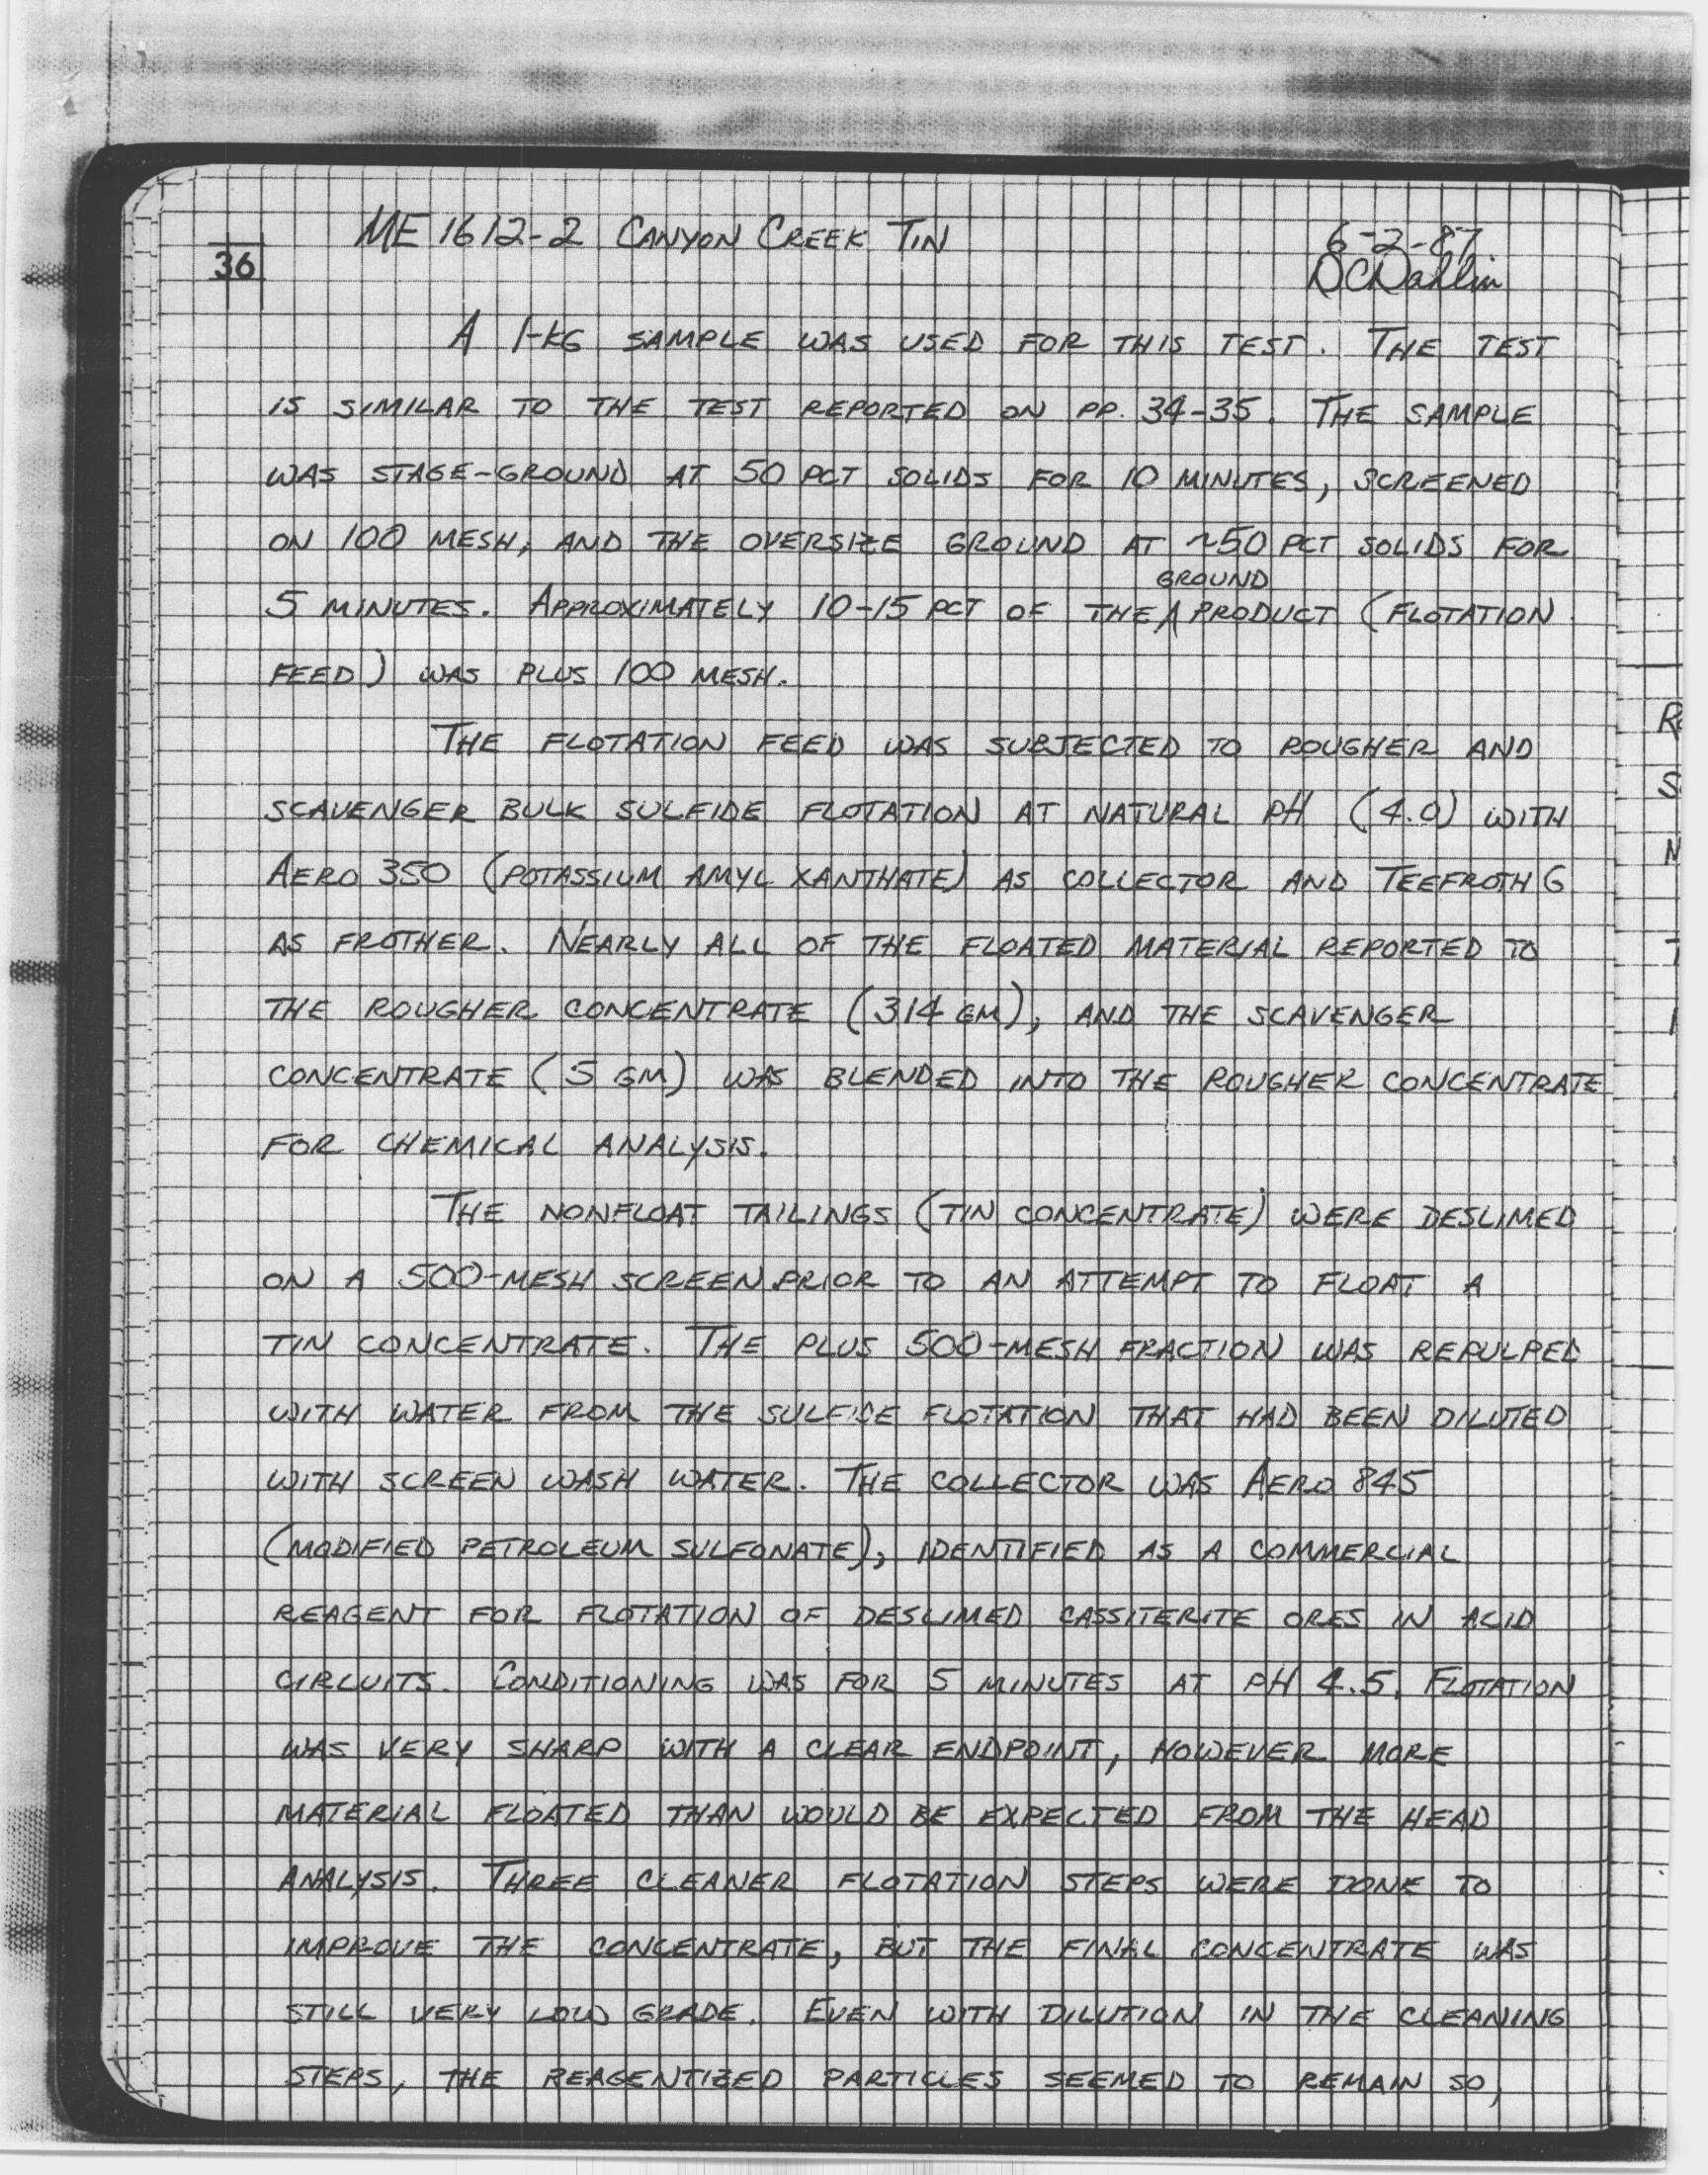 ME 1612-2 CANYON CREEK TIN
6-2-87
36
DCDahlin
A 1-KG SAMPLE WAS USED FOR THIS TEST. THE TEST
IS SIMILAR TO THE TEST REPORTED ON PP. 34-35. THE SAMPLE
WAS STAGE-GROUND AT 50 PCT SOLIDS FOR 10 MINUTES, SCREENED
ON 100 MESH, AND THE OVERSIZE GROUND AT ~50 PCT SOLIDS FOR
GROUND
5 MINUTES. APPROXIMATELY 10-15 PCT OF THE PRODUCT (FLOTATION
FEED) WAS PLUS 100 MESH.
THE FLOTATION FEED WAS SUBJECTED TO ROUGHER AND
SCAVENGER BULK SULFIDE FLOTATION AT NATURAL PH (4.0) WITH
AERO 350 (POTASSIUM AMYL XANTHATE) AS COLLECTOR AND TEEFROTH G
AS FROTHER. NEARLY ALL OF THE FLOATED MATERIAL REPORTED TO
THE ROUGHER CONCENTRATE (314 GM), AND THE SCAVENGER
CONCENTRATE (5 GM) WAS BLENDED INTO THE ROUGHER CONCENTRATE
FOR CHEMICAL ANALYSIS.
THE NONFLOAT TAILINGS (TIN CONCENTRATE) WERE DESLIMED
ON A 500-MESH SCREEN PRIOR TO AN ATTEMPT TO FLOAT A
TIN CONCENTRATE. THE PLUS 500-MESH FRACTION WAS REPULPED
WITH WATER FROM THE SULFIDE FLOTATION THAT HAD BEEN DILUTED
WITH SCREEN WASH WATER. THE COLLECTOR WAS AERO 845
(MODIFIED PETROLEUM SULFONATE), IDENTIFIED AS A COMMERCIAL
REAGENT FOR FLOTATION OF DESLIMED CASSITERITE ORES IN ACID
CIRCUITS. CONDITIONING WAS FOR 5 MINUTES AT PH 4.5. FLOTATION
WAS VERY SHARP WITH A CLEAR ENDPOINT, HOWEVER MORE
MATERIAL FLOATED THAN WOULD BE EXPECTED FROM THE HEAD
ANALYSIS. THREE CLEANER FLOTATION STEPS WERE DONE TO
IMPROVE THE CONCENTRATE, BUT THE FINAL CONCENTRATE WAS
STILL VERY LOW GRADE. EVEN WITH DILUTION IN THE CLEANING
STEPS, THE REAGENTIZED PARTICLES SEEMED TO REMAIN SO,